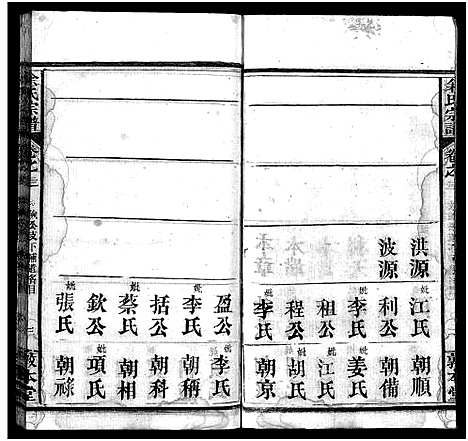 余氏宗譜 卷之三 敦本堂
洪源 妣江氏 朝順
波源 利公 朝備
妣李氏 妣姜氏
祖公 妣江氏
程公 妣胡氏
妣李氏 朝京
盈公 妣李氏
妣李氏 朝稱
括公 朝科
妣蔡氏 朝相
欽公 妣項氏
妣張氏 朝祿
余氏宗譜 卷之三 三 敦本堂